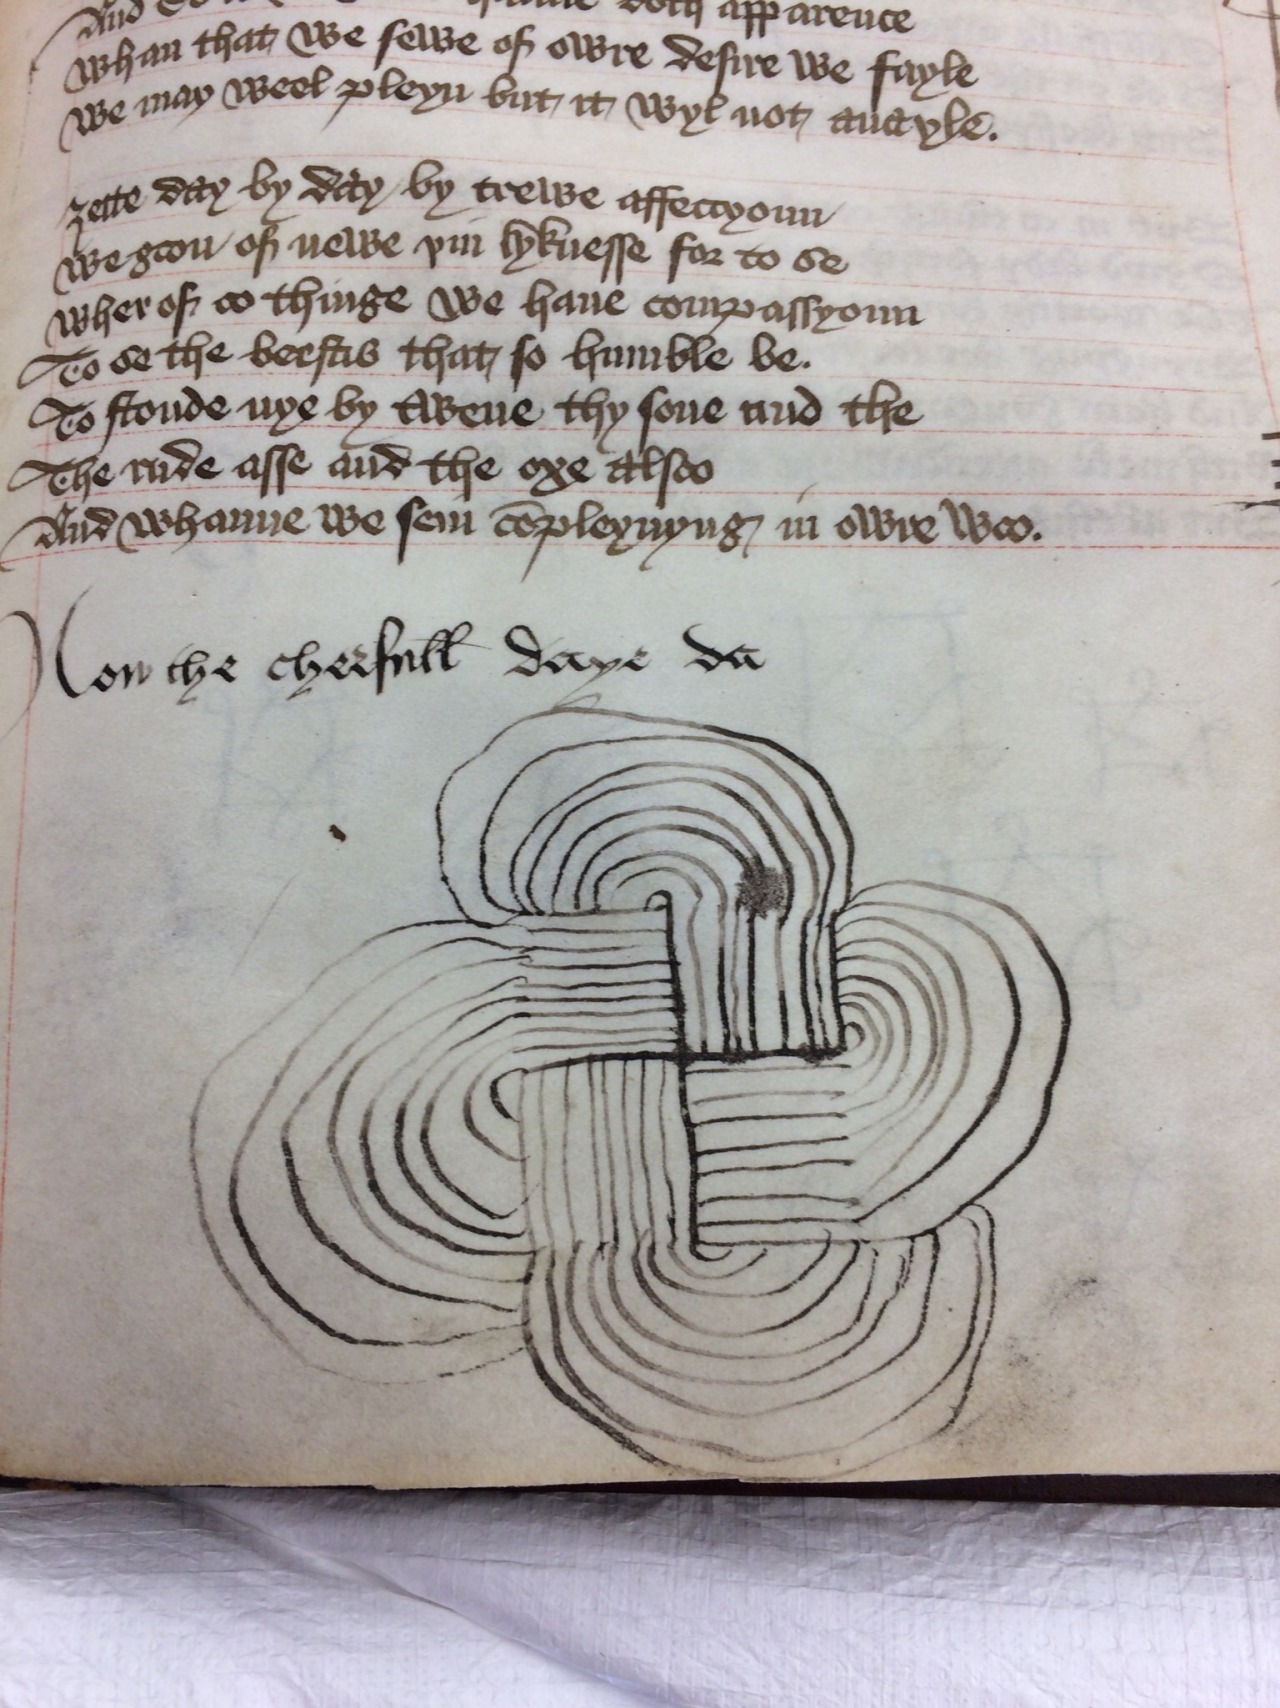 And doth apparence
Whan that we sewe of owre desire we fayle
We may weel pleyn but it wyl not auayle.
Ȝette day by day by trewe affeccyoun
We gon of newe yin lyknesse for to se
Wher of oo thinge we haue compassyoun
To se the beestis that so humble be.
To stonde nye by twene thy sone and the
The rude asse and the oxe also
And whanne we sem cōpleynyng in owre woo.
Now the cherfull daye da